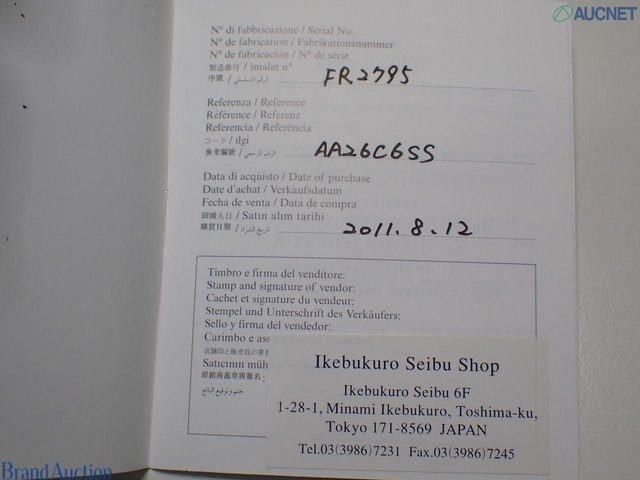 AUCNET
N° di fabbricazione / Serial No.
N° de fabrication / Fabrikationsnummer
N° de fabricación / N° de série
製造番号 / imalat n°
序號 / الرقم التسلسلي FR2795
Referenza / Reference
Référence / Referenz
Referencia / Referência
コード / ilgi
參考編號 / الرقم المرجعي AA26C6SS
Data di acquisto / Date of purchase
Date d'achat / Verkaufsdatum
Fecha de venta / Data de compra
御購入日 / Satın alım tarihi
購買日期 / تاريخ الشراء 2011.8.12
Timbro e firma del venditore:
Stamp and signature of vendor:
Cachet et signature du vendeur:
Stempel und Unterschrift des Verkäufers:
Sello y firma del vendedor:
Carimbo e ass
店舗印と販売員の署名
Satıcının müh
經銷商蓋章與簽名
ختم وتوقيع البائع
Ikebukuro Seibu Shop
Ikebukuro Seibu 6F
1-28-1, Minami Ikebukuro, Toshima-ku,
Tokyo 171-8569 JAPAN
Tel.03(3986)7231 Fax.03(3986)7245
Brand Auction